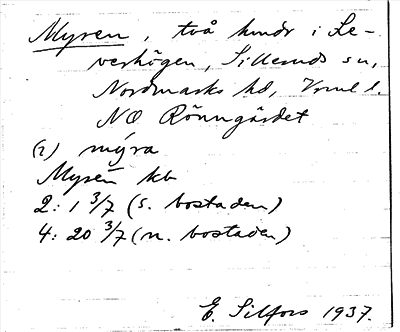 Myren, två hmdr i Le-
verhögen, Sillerud sn,
Nordmarks hd, Vrml l.
NO Rönngärdet
(2) mýra
Myren kb
2: 1 3/7 (s. bostaden)
4: 20 3/7 (n. bostaden)
E. Silfors 1937.